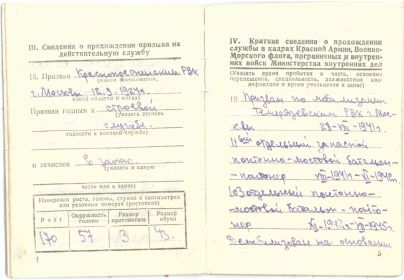 III. Сведения о прохождении призыва на
действительную службу
18. Призван Краснопресненским РВК
(каким комиссариатом,
г. Москвы 18.9.1927г.
какой области и когда)
Призван годным к строевой
(указать степень
службе.
годности к военной службе)
и зачислен в запас.
(указать в какую
часть или в запас)
Измерения роста, головы, ступни в сантиметрах
или условных номерах (ростовках)
Рост
Окружность головы
Размер противогаза
Размер обуви
170 57 3 43.
4
IV. Краткие сведения о прохождении
службы в кадрах Красной Армии, Военно-
Морского флота, пограничных и внутрен-
них войск Министерства внутренних дел
(Указать время прибытия в часть, основное
перемещения, специальность, должностные
и время увольнения в запас)
19. Призван по мобилизации
Тимирязевским РВК г. Мос-
квы 23-VIII-1941г.
11ый отдельный запасной
понтонно-мостовой батальон-
-понтонер VIII-1941г-XI-1941г.
103 отдельный понтонно-
-мостовой батальон-понто-
нер XI-1941г-VIII-1945г.
Демобилизован на основании
5